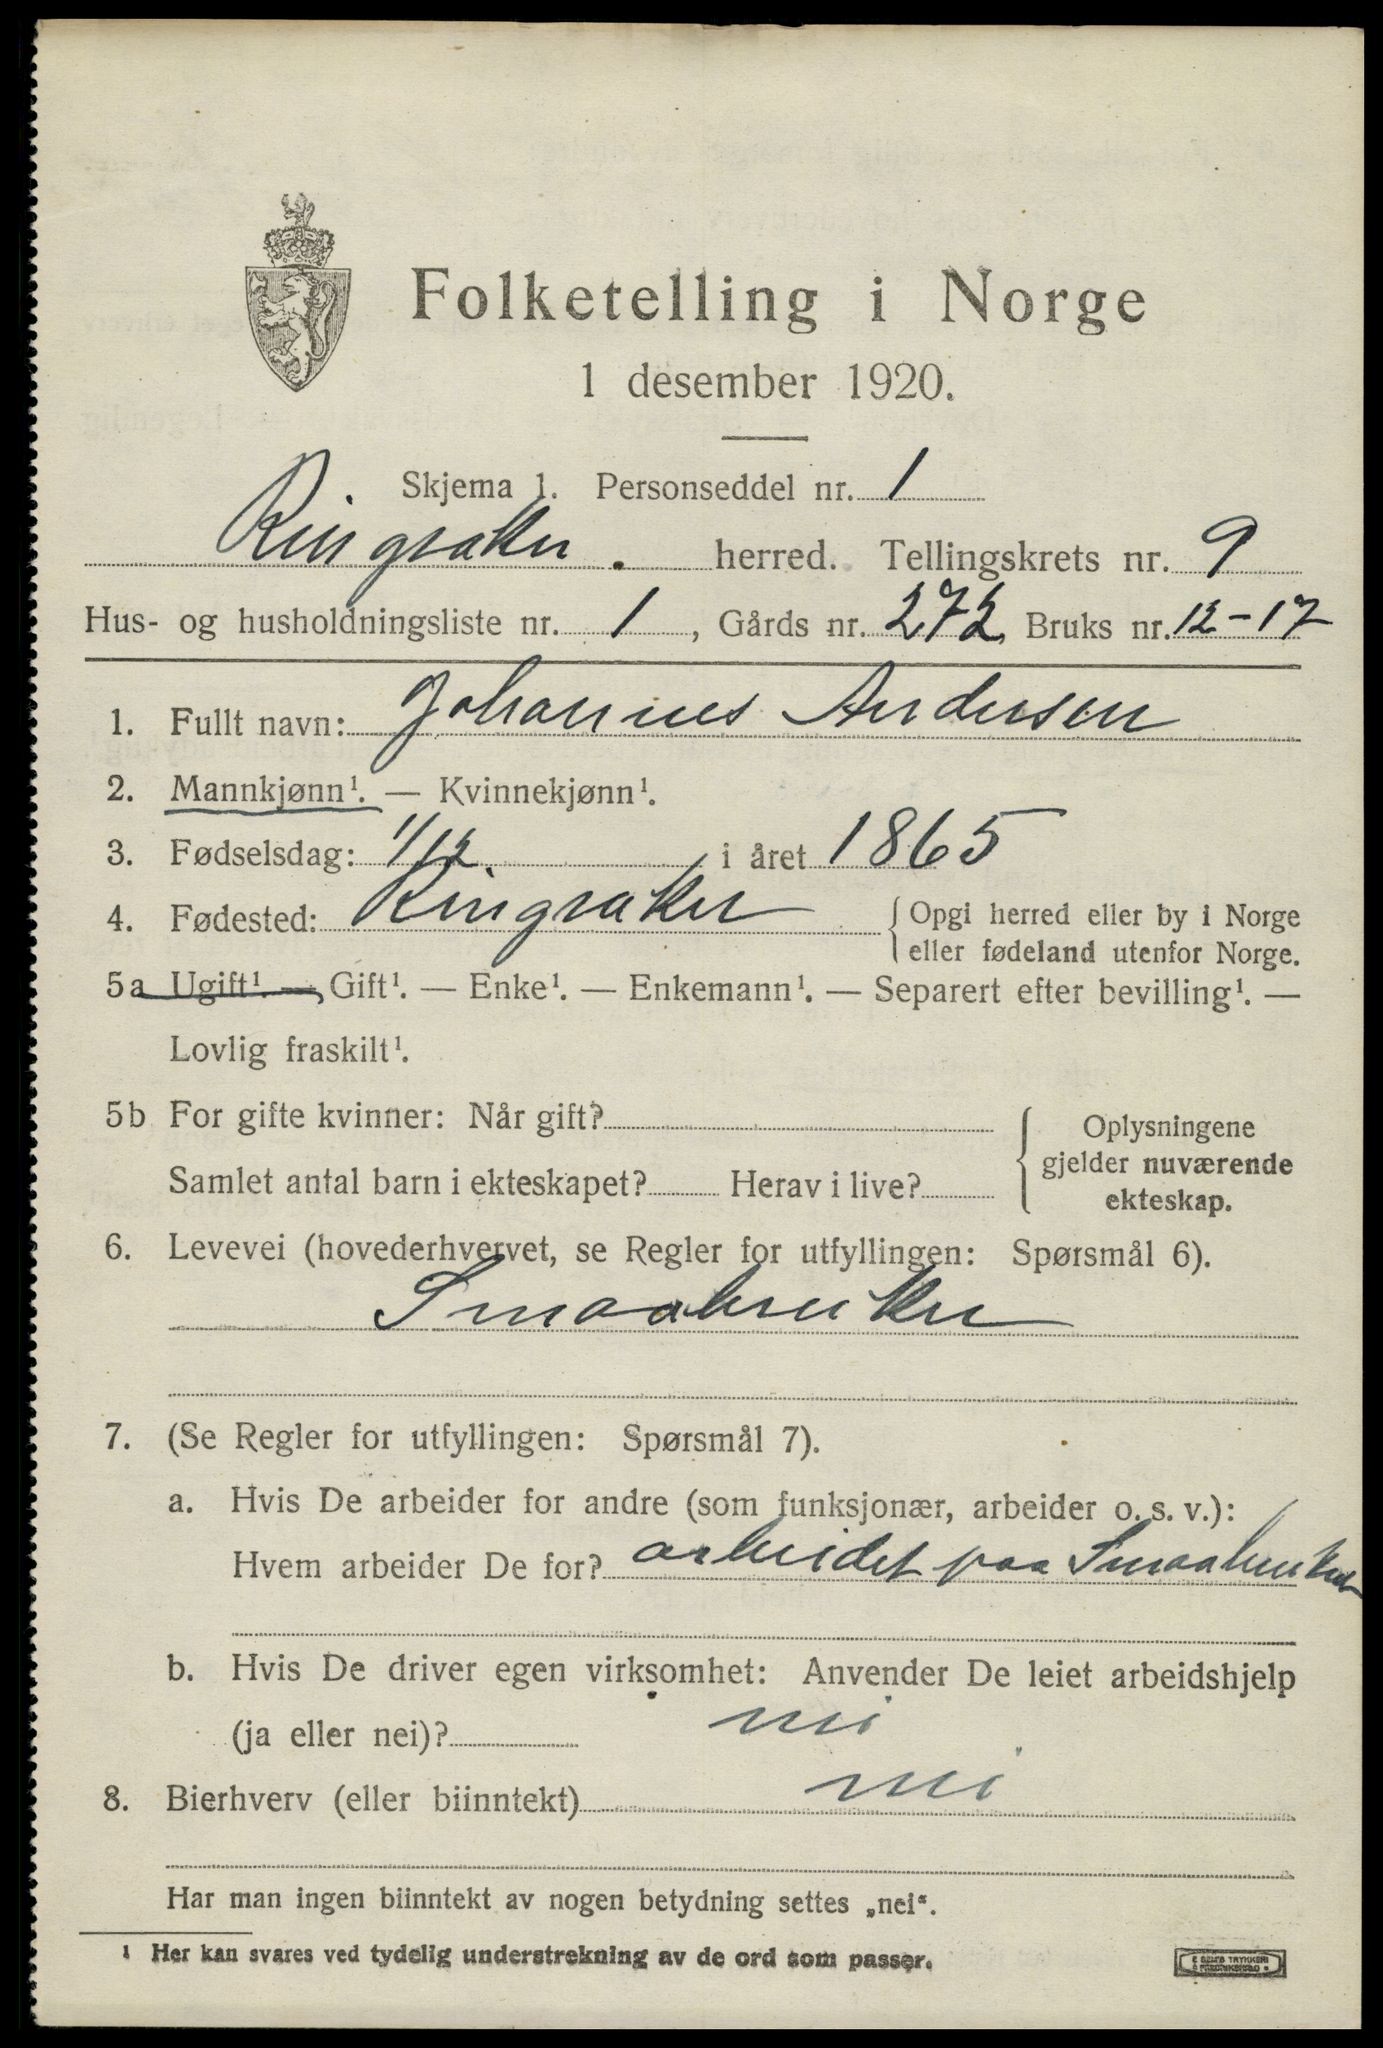 Folketelling i Norge
1 desember 1920.
Skjema 1. Personseddel nr. 1
Ringsaker. herred. Tellingskrets nr. 9
Hus- og husholdningsliste nr. 1, Gårds nr. 272, Bruks nr. 12-17
1. Fullt navn: Johannes Andersen
2. Mannkjønn¹. — Kvinnekjønn¹.
3. Fødselsdag: 1/12 i året 1865
4. Fødested: Ringsaker { Opgi herred eller by i Norge
eller fødeland utenfor Norge.
5a Ugift¹. — Gift¹. — Enke¹. — Enkemann¹. — Separert efter bevilling¹. —
Lovlig fraskilt¹.
5b For gifte kvinner: Når gift?
Samlet antal barn i ekteskapet? Herav i live?
Oplysningene
gjelder nuværende
ekteskap.
6. Levevei (hovederhvervet, se Regler for utfyllingen: Spørsmål 6).
Smaabruker
7. (Se Regler for utfyllingen: Spørsmål 7).
a. Hvis De arbeider for andre (som funksjonær, arbeider o. s. v.):
Hvem arbeider De for? arbeidet paa Smaabruket
b. Hvis De driver egen virksomhet: Anvender De leiet arbeidshjelp
(ja eller nei)? nei
8. Bierhverv (eller biinntekt) nei
Har man ingen biinntekt av nogen betydning settes „nei“.
¹ Her kan svares ved tydelig understrekning av de ord som passer.